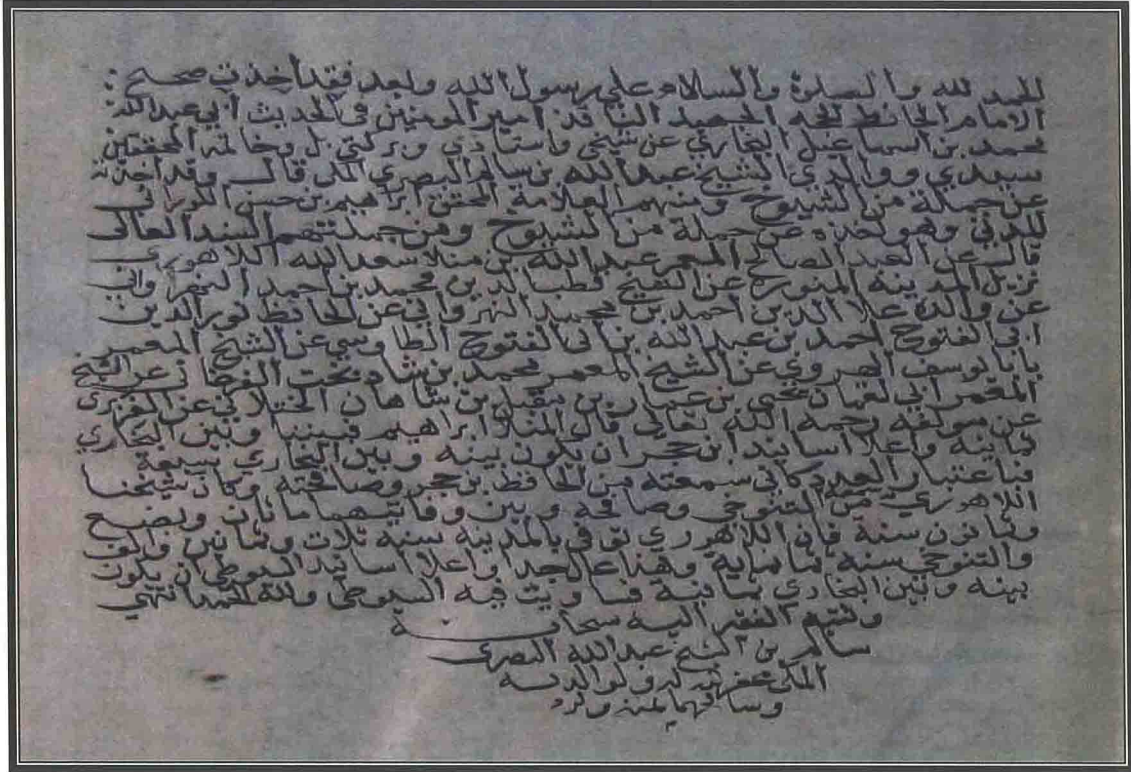 الحمد لله والصلوة والسلام على رسول الله وبعد فقد اخذت صحيح
الامام الحافظ الحجة الناقد امير المومنين في الحديث ابي عبد الله
محمد بن اسماعيل البخاري عن شيخي واستاذي وبركتي وخاتمة المحققين
سيدي ووالدي الشيخ عبد الله بن سالم البصري المكي قال وقد اخذته
عن جملة من الشيوخ ومنهم العلامة المحقق ابراهيم بن حسن الكوراني
المدني وهو اخذه عن جملة من الشيوخ ومن جملتهم السند العالي
قال عن العبد الصالح المعمر عبد الله بن منلا سعد الله اللاهوري
نزيل المدينة المنورة عن الشيخ قطب الدين محمد بن احمد النهرواني
عن والده علا الدين احمد بن محمد النهرواني عن الحافظ نور الدين
ابي الفتوح احمد بن عبد الله بن ابي الفتوح الطاوسي عن الشيخ المعمر
بابا يوسف الهروي عن الشيخ المعمر محمد بن شاد بخت الفرغاني عن الشيخ
المعمر ابي لقمان يحيى بن عمار بن مقبل بن شاهان الختلاني عن الفربري
عن مولفه رحمه الله تعالى قال المنلا ابراهيم فبيننا وبين البخاري
ثمانية واعلا اسانيد ابن حجر ان يكون بينه وبين البخاري سبعة
فباعتبار العدد كاني سمعته من الحافظ بن حجر وصافحته وكان شيخنا
اللاهوري من التنوخي وصافحه وبين وفاتيهما مائتان وبضع
وثمانون سنة فان اللاهوري توفي بالمدينة سنة ثلاث وثمانين والف
والتنوخي سنة ثمانماية وهذا عال جدا واعلا اسانيد السيوطي ان يكون
بينه وبين البخاري ثمانية فساويت فيه السيوطي ولله الحمد انتهى
وكتبه الفقير اليه سبحانه
سالم بن الشيخ عبد الله البصري
المكي غفر له ولوالديه
ومشائخهما بمنه وكرمه